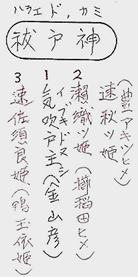 ハラエド、カミ
祓戸神
(豊アキツヒメ)
速秋ツ姫
2 瀬織ツ姫(櫛稲田ヒメ)
イブキドヌシ
1 気吹戸主(金山彦)
3 速佐須良姫(鴨玉依姫)